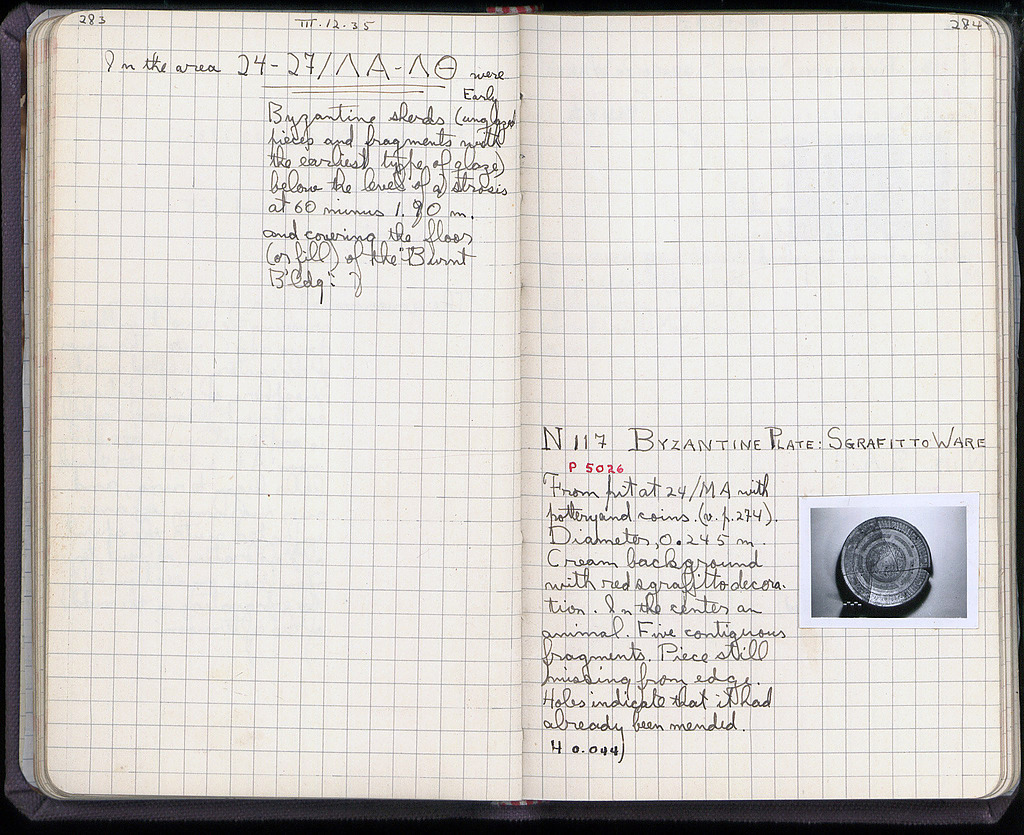 283
III.12.35
In the area 24-27/ΛΑ-ΛΘ were
Early
Byzantine sherds (unglazed
pieces and fragments with
the earliest type of glaze)
below the level of a strosis
at 60 minus 1.90 m.
and covering the floor
(or fill) of the "Burnt
Bldg".
284
N 117 BYZANTINE PLATE: SGRAFITTO WARE
P 5026
From pit at 24/MA with
pottery and coins. (v. p. 274).
Diameter, 0.245 m.
Cream background
with red sgrafitto decora-
tion. In the center an
animal. Five contiguous
fragments. Piece still
missing from edge.
Holes indicate that it had
already been mended.
H 0.044)